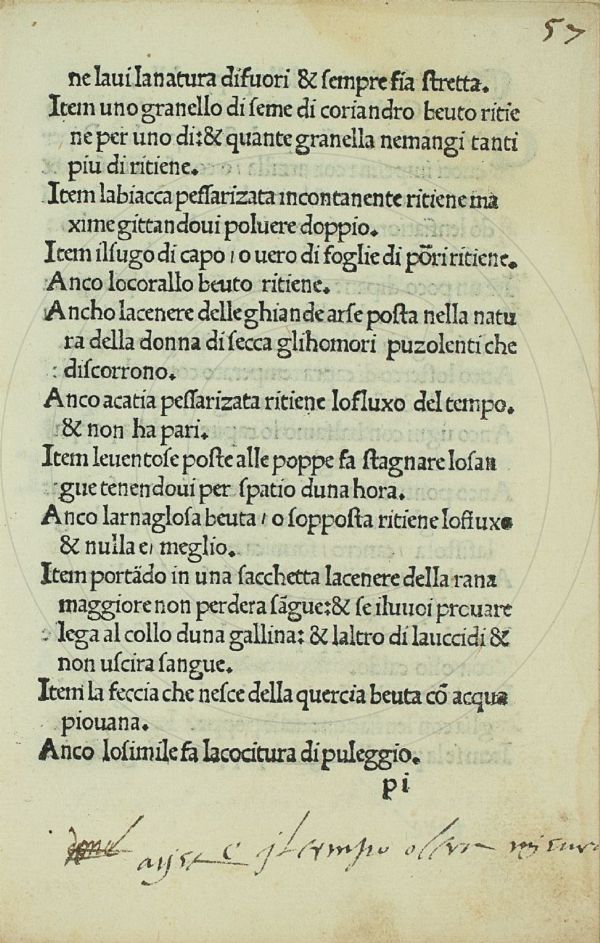 57
ne laui lanatura difuori & sempre fia stretta.
Item uno granello di seme di coriandro beuto ritie
ne per uno di:& quante granella nemangi tanti
piu di ritiene.
Item labiacca pessarizata incontanente ritiene ma
xime gittandoui poluere doppio.
Item ilsugo di capo / o uero di foglie di põri ritiene.
Anco locorallo beuto ritiene.
Ancho lacenere delle ghiande arse posta nella natu
ra della donna di secca glihomori puzolenti che
discorrono.
Anco acatia pessarizata ritiene lofluxo del tempo.
& non ha pari.
Item leuentose poste alle poppe fa stagnare losan
gue tenendoui per spatio duna hora.
Anco larnaglosa beuta / o sopposta ritiene lofluxo
& nulla e/ meglio.
Item portãdo in una sacchetta lacenere della rana
maggiore non perdera sãgue:& se iluuoi prouare
lega al collo duna gallina: & laltro di lauccidi &
non uscira sangue.
Item la feccia che nesce della quercia beuta cõ acqua
piouana.
Anco losimile fa lacocitura di puleggio.
pi